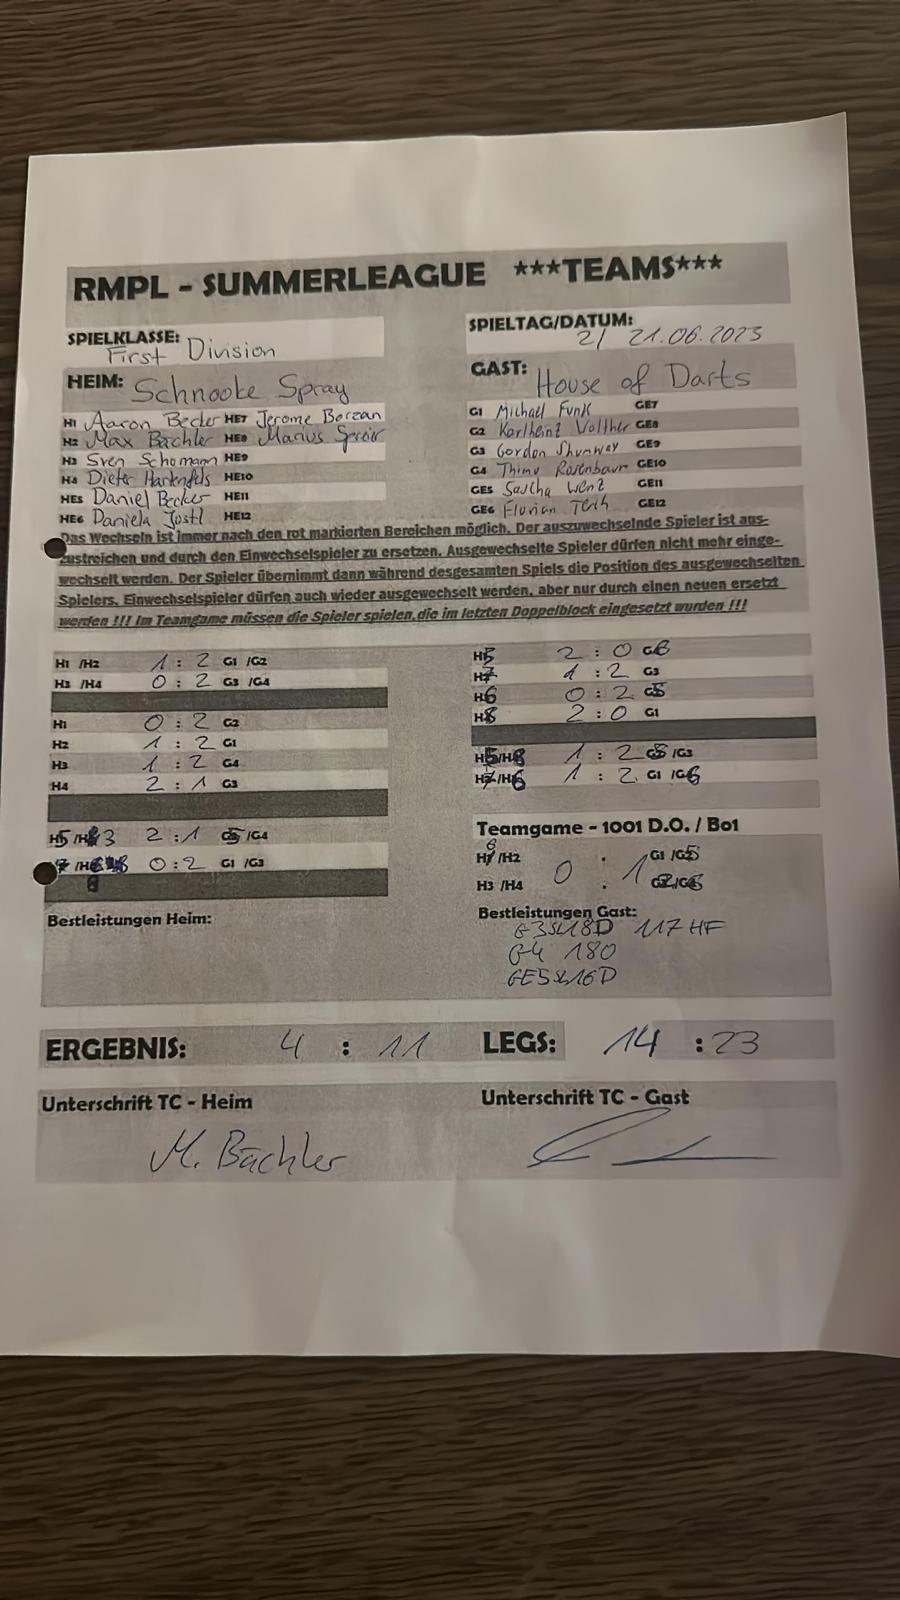 RMPL - SUMMERLEAGUE ***TEAMS***
SPIELKLASSE: First Division
SPIELTAG/DATUM: 2/ 21.06.2023
HEIM: Schnooke Spray
GAST: House of Darts
H1 Aaron Becker HE7 Jerome Borzan
H2 Max Bächler HE8 Marius
H3 Sven Schomann HE9
H4 Dieter HE10
HE5 Daniel Becker HE11
HE6 Daniela Jostl HE12
G1 Michael Funk GE7
G2 Karlheinz Walther GE8
G3 Gordon Shumway GE9
G4 Thimo Rosenbaum GE10
GE5 Sascha Wenz GE11
GE6 Florian GE12
Das Wechseln ist immer nach den rot markierten Bereichen möglich. Der auszuwechselnde Spieler ist aus-
zustreichen und durch den Einwechselspieler zu ersetzen. Ausgewechselte Spieler dürfen nicht mehr einge-
wechselt werden. Der Spieler übernimmt dann während desgesamten Spiels die Position des ausgewechselten
Spielers. Einwechselspieler dürfen auch wieder ausgewechselt werden, aber nur durch einen neuen ersetzt
werden !!! Im Teamgame müssen die Spieler spielen,die im letzten Doppelblock eingesetzt wurden !!!
H1 /H2 1 : 2 G1 /G2
H3 /H4 0 : 2 G3 /G4
H1 0 : 2 G2
H2 1 : 2 G1
H3 1 : 2 G4
H4 2 : 1 G3
H5 /H3 2 : 1 G5 /G4
7 /H8 0 : 2 G1 /G3
Bestleistungen Heim:
H5 2 : 0 G6
H7 1 : 2 G3
H6 0 : 2 G5
H8 2 : 0 G1
H5/H8 1 : 2 G5 /G3
H7/H6 1 : 2 G1 /G6
Teamgame - 1001 D.O. / Bo1
6
H1/H2 G1 /G5
0 : 1
H3 /H4 G6
Bestleistungen Gast:
G3 SL18D 117 HF
G4 180
GE5 SL16D
ERGEBNIS: 4 : 11 LEGS: 14 : 23
Unterschrift TC - Heim
Unterschrift TC - Gast
M. Bächler